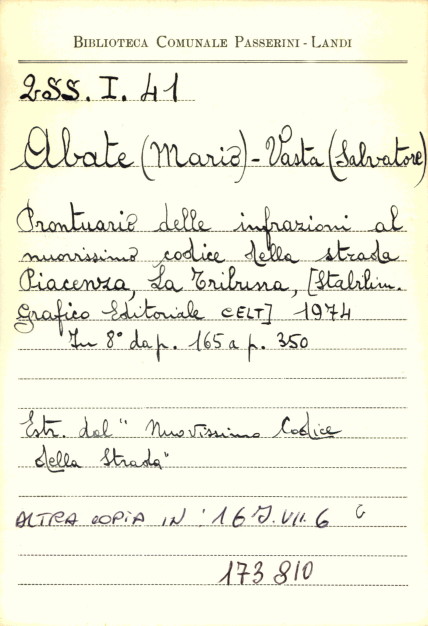 BIBLIOTECA COMUNALE PASSERINI - LANDI
2SS. I. 41
Abate (Mario) - Vasta (Salvatore)
Prontuario delle infrazioni al
nuovissimo codice della strada
Piacenza, La Tribuna, [Stabilim.
Grafico Editoriale CELT] 1974
In 8° da p. 165 a p. 350
Estr. dal "Nuovissimo Codice
della Strada"
ALTRA COPIA IN: 16 J. VII. 6
173810